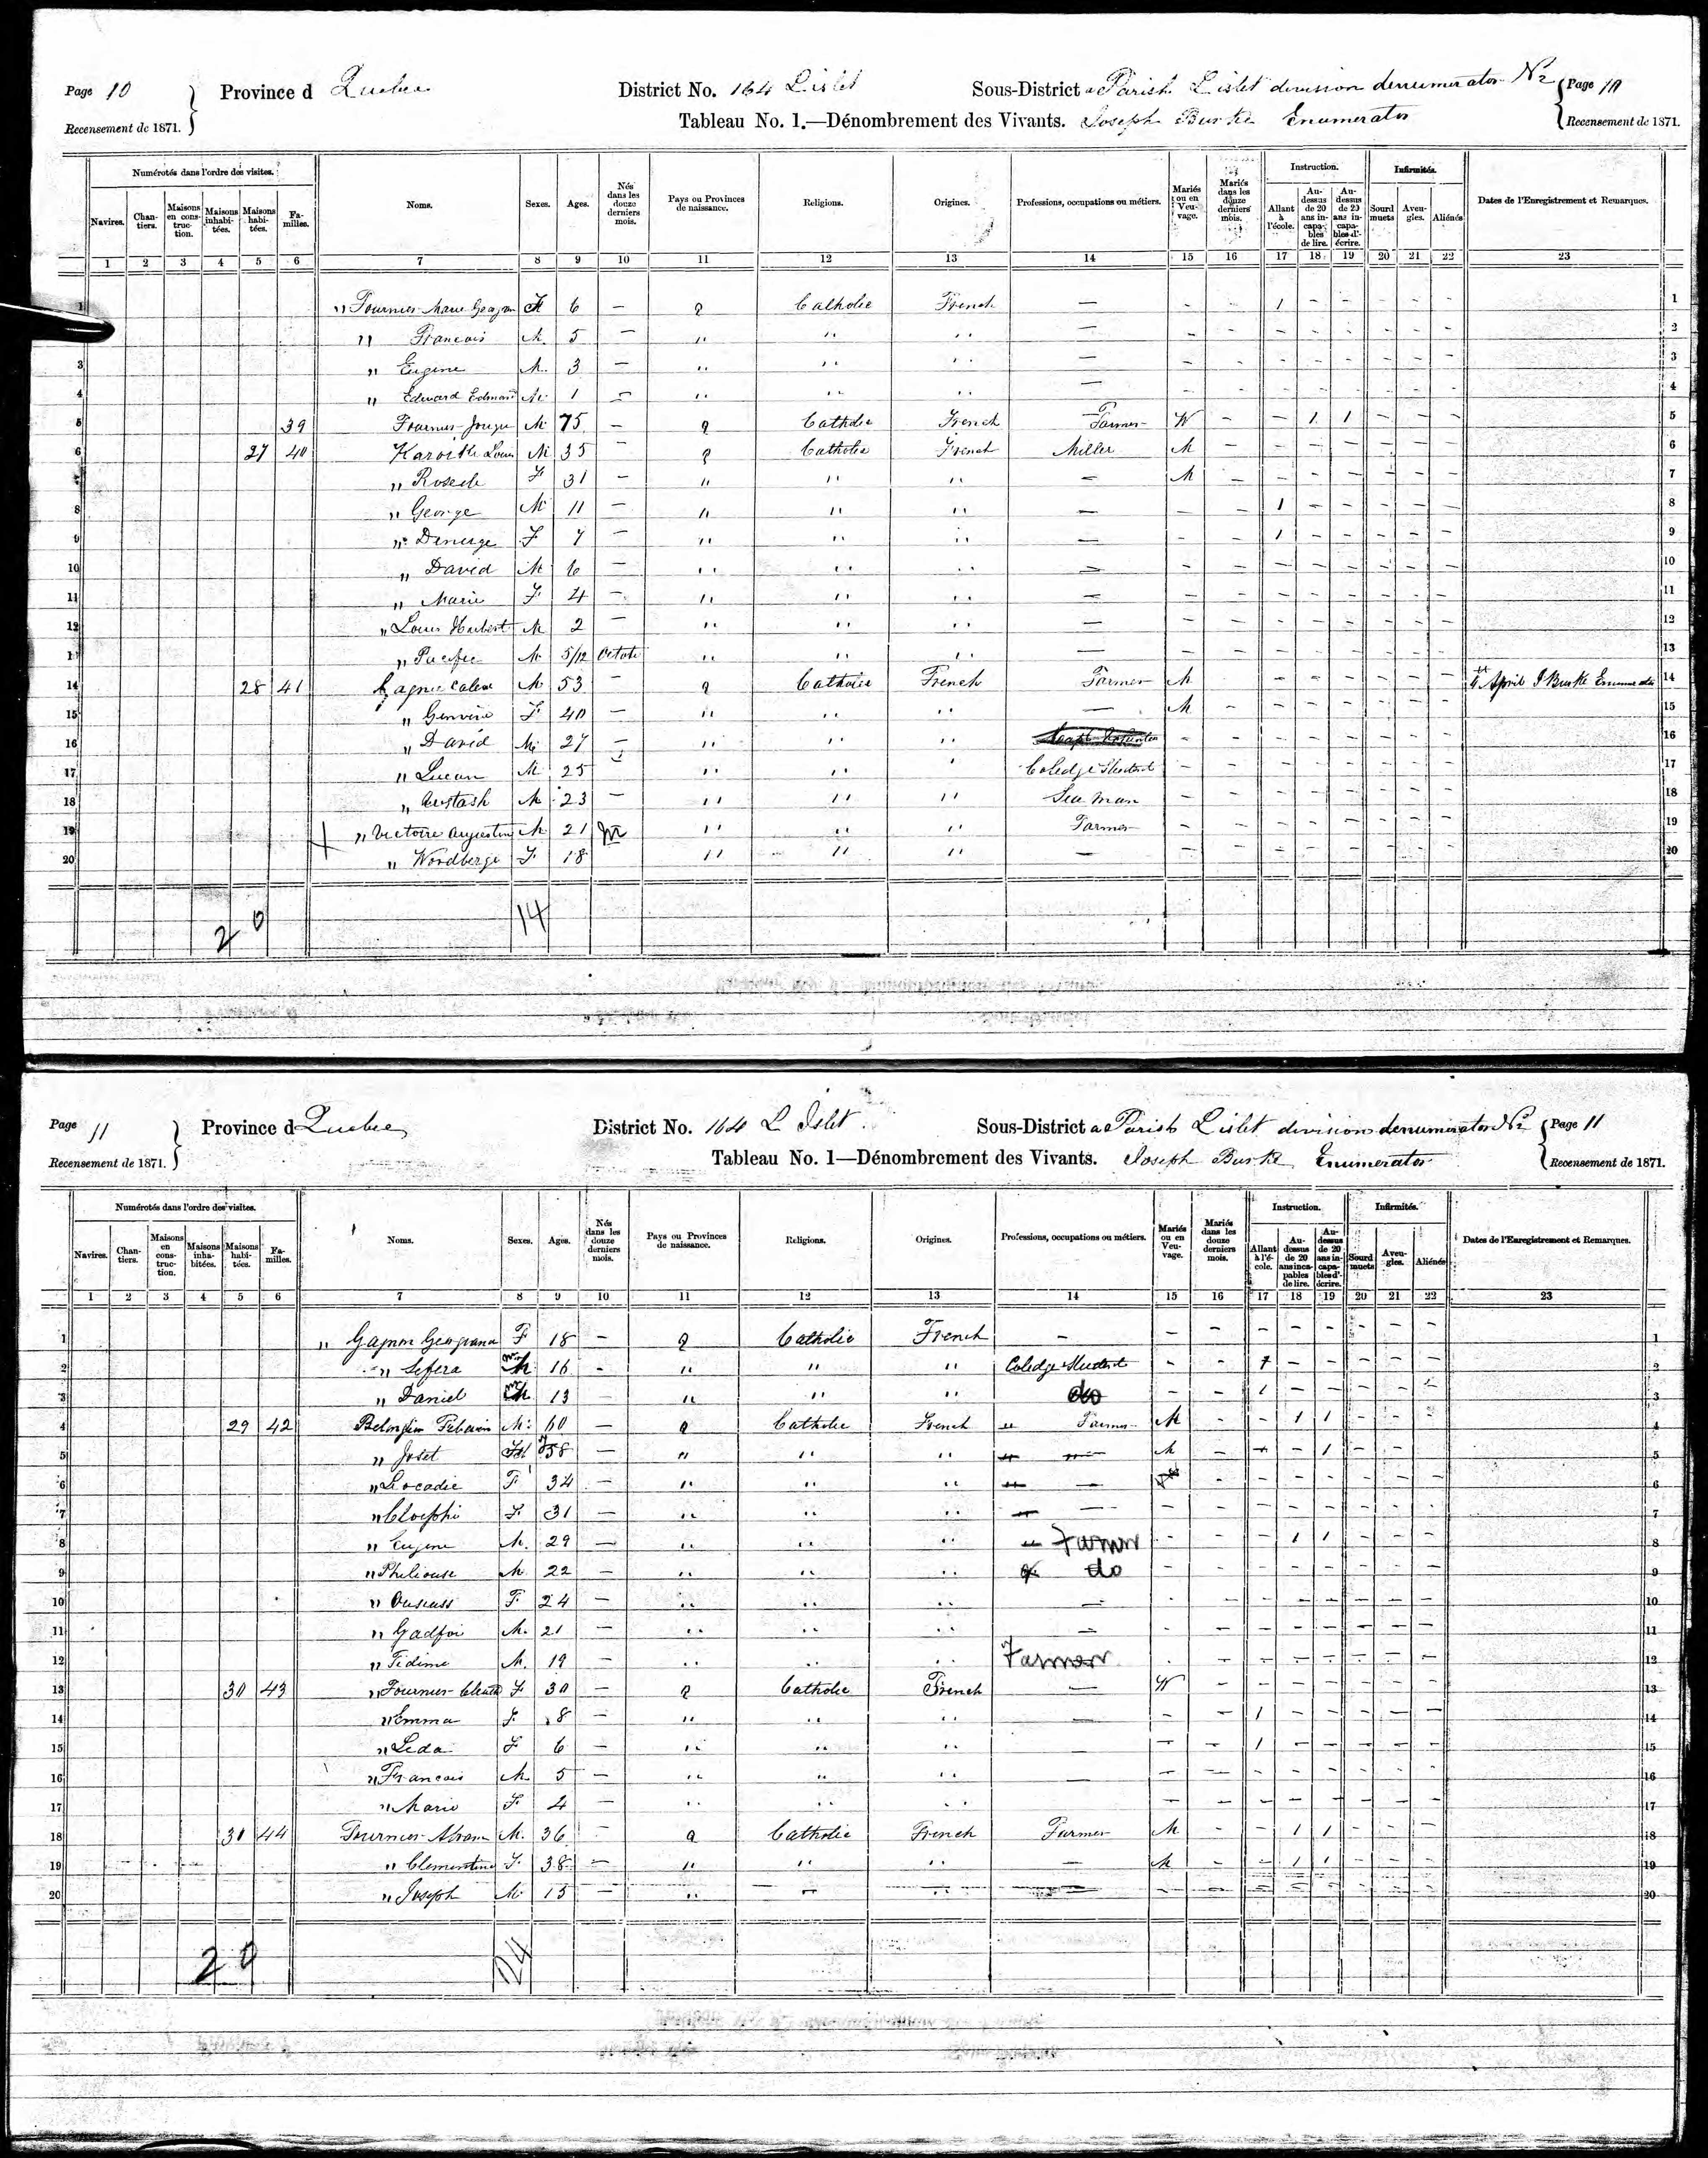 Page 10 Province d Quebec District No. 164 Lislet Sous-District a Parish Lislet division denumerator No 2 Page 10
Recensement de 1871. Tableau No. 1.—Dénombrement des Vivants. Joseph Burke Enumerator Recensement de 1871.
Numérotés dans l'ordre des visites. Noms. Sexes. Ages. Nés dans les douze derniers mois. Pays ou Provinces de naissance. Religions. Origines. Professions, occupations ou métiers. Mariés ou en Veuvage. Mariés dans les douze derniers mois. Instruction. Infirmités. Dates de l'Enregistrement et Remarques.
Navires. Chantiers. Maisons en construction. Maisons inhabitées. Maisons habitées. Familles. Allant à l'école. Au-dessus de 20 ans incapables de lire. Au-dessus de 20 ans incapables d'écrire. Sourd muets Aveugles. Aliénés
1 2 3 4 5 6 7 8 9 10 11 12 13 14 15 16 17 18 19 20 21 22 23
1 " Fournier Marie F 6 — Q Catholic French — - - 1 - - - - - 1
2 " Francois M 5 — " " " — - - - - - - - - 2
3 " Eugene M. 3 — " " " — - - - - - - - - 3
4 " Edward Edmond M 1 — " " " — - - - - - - - - 4
5 39 Fournier M 75 — Q Catholic French Farmer W - - 1 1 - - - 5
6 27 40 Louis M 35 — Q Catholic French Miller M 6
7 " F 31 — " " " — M - - - - - - - 7
8 " George M 11 — " " " — - - 1 - - - - - 8
9 " F 7 — " " " — - - 1 - - - - - 9
10 " David M 6 — " " " — - - - - - - - - 10
11 " Marie F 4 — " " " — - - - - - - - - 11
12 " Louis Hubert M 2 — " " " — - - - - - - - - 12
13 " Pacific M 5/12 " " " — - - - - - - - - 13
14 28 41 M 53 — Q Catholic French Farmer M - - - - - - 4 April J Burke Enumerator 14
15 " F 40 — " " " — M - - - - - - - 15
16 " David M 27 — " " " - - - - - - - - 16
17 " M 25 " " " Coledge Student - - - - - - - - 17
18 " Eustash M 23 — " " " Sea man - - - - - - - - 18
19 " Victoire Augustin M 21 " " " Farmer - - - - - - - - 19
20 " Wordberge F 18 " " " — - - - - - - - - 20
20 14
Page 11 Province d Quebec District No. 164 L Islet Sous-District a Parish Lislet division denumerator No 2 Page 11
Recensement de 1871. Tableau No. 1—Dénombrement des Vivants. Joseph Burke Enumerator Recensement de 1871.
Numérotés dans l'ordre des visites. Noms. Sexes. Ages. Nés dans les douze derniers mois. Pays ou Provinces de naissance. Religions. Origines. Professions, occupations ou métiers. Mariés ou en Veuvage. Mariés dans les douze derniers mois. Instruction. Infirmités. Dates de l'Enregistrement et Remarques.
Navires. Chantiers. Maisons en construction. Maisons inhabitées. Maisons habitées. Familles. Allant à l'école. Au-dessus de 20 ans incapables de lire. Au-dessus de 20 ans incapables d'écrire. Sourd muets Aveugles. Aliénés
1 2 3 4 5 6 7 8 9 10 11 12 13 14 15 16 17 18 19 20 21 22 23
1 " Gagnon F 18 — Q Catholic French — - - - - - - - - 1
2 " M 16 - " " " Coledge Student - - 1 - - - - - 2
3 " Daniel M 13 — " " " do - - 1 - - - - - 3
4 29 42 M 60 — Q Catholic French " Farmer M - - 1 1 - - - 4
5 " Joset F 58 — " " " M - - - 1 - - 5
6 " Locadie F 34 — " " " — - - - - - - - 6
7 " F 31 — " " " — - - - - - - - - 7
8 " Eugene M. 29 — " " " Farmer - - - 1 1 - - - 8
9 " M 22 — " " " do - - - - - - - - 9
10 " F 24 — " " " — - - - - - - - - 10
11 " Gadfoi M. 21 — " " " — - - - - - - - - 11
12 " Fidime M. 19 — " " " Farmer - - - - - - - - 12
13 30 43 " Fournier F 30 — Q Catholic French — W - - - - - - - 13
14 " Emma F 8 — " " " — - - 1 - - - - - 14
15 " Leda F 6 — " " " — - - 1 - - - - - 15
16 " Francois M 5 — " " " — - - - - - - - - 16
17 " Marie F 4 — " " " - - - - - - - - 17
18 31 44 Fournier Abram M. 36 - Q Catholic French Farmer M - - 1 1 - - - 18
19 " Clementine F 38 — " " " — M - - 1 1 - - - 19
20 " Joseph M 15 — " " " — - - - - - - - - 20
20 24